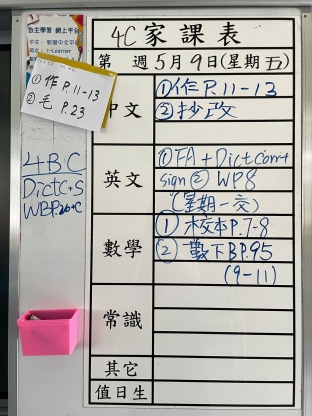 自主學習 網上平台
4C 家課表
第 週 5月9日(星期五)
① 作 P.11-13
② 毛 P.23
中文
①作P.11-13
②抄改
4BC
Dict C+S
WBP.26+C
英文
① FA + Dict corr+
sign ② WP8
(星期一交)
數學
① 校本P.7-8
② 數下BP.95
(9-11)
常識
其它
值日生